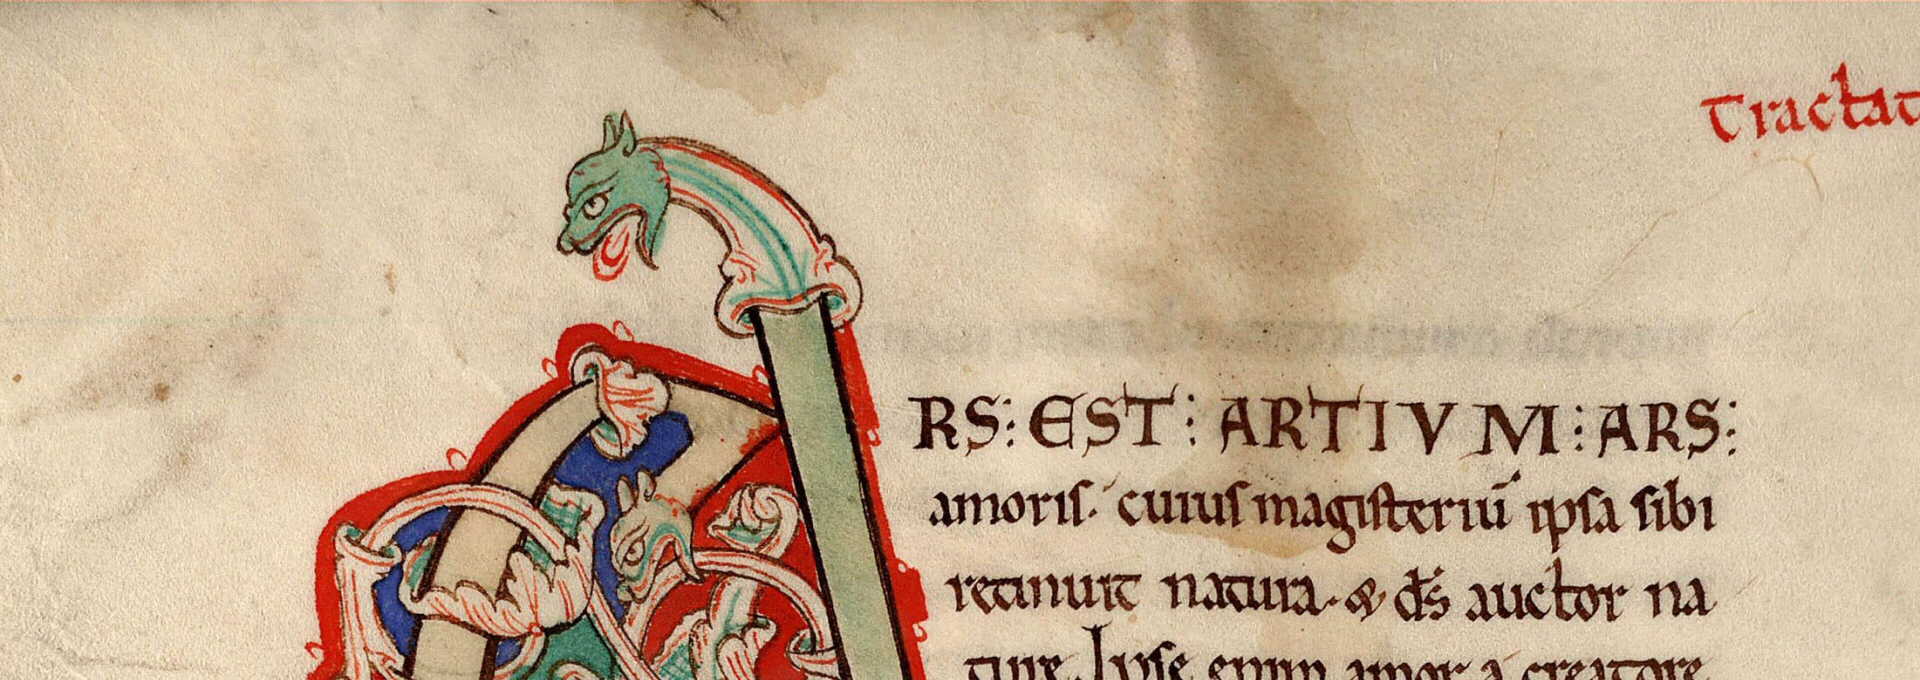 Tractat
RS: EST: ARTIVM: ARS:
amoris. cuius magisteriū ipsa sibi
retinuit natura. & ds̄ auctor na
ture. Ipse enim amor a creatore